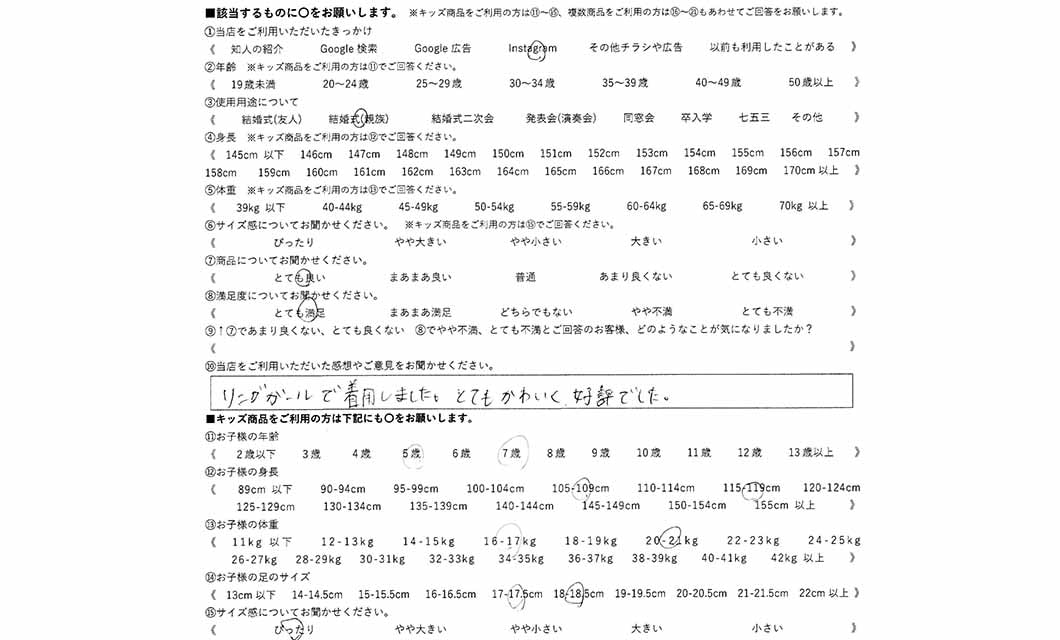 ■該当するものに〇をお願いします。 ※キッズ商品をご利用の方は⑪〜⑮、複数商品をご利用の方は⑯〜㉑もあわせてご回答をお願いします。
①当店をご利用いただいたきっかけ
《 知人の紹介 Google 検索 Google 広告 Instagram その他チラシや広告 以前も利用したことがある 》
②年齢 ※キッズ商品をご利用の方は⑪でご回答ください。
《 19歳未満 20〜24歳 25〜29歳 30〜34歳 35〜39歳 40〜49歳 50歳以上 》
③使用用途について
《 結婚式(友人) 結婚式(親族) 結婚式二次会 発表会(演奏会) 同窓会 卒入学 七五三 その他 》
④身長 ※キッズ商品をご利用の方は⑫でご回答ください。
《 145cm 以下 146cm 147cm 148cm 149cm 150cm 151cm 152cm 153cm 154cm 155cm 156cm 157cm
158cm 159cm 160cm 161cm 162cm 163cm 164cm 165cm 166cm 167cm 168cm 169cm 170cm 以上 》
⑤体重 ※キッズ商品をご利用の方は⑬でご回答ください。
《 39kg 以下 40-44kg 45-49kg 50-54kg 55-59kg 60-64kg 65-69kg 70kg 以上 》
⑥サイズ感についてお聞かせください。 ※キッズ商品をご利用の方は⑮でご回答ください。
《 ぴったり やや大きい やや小さい 大きい 小さい 》
⑦商品についてお聞かせください。
《 とても良い まあまあ良い 普通 あまり良くない とても良くない 》
⑧満足度についてお聞かせください。
《 とても満足 まあまあ満足 どちらでもない やや不満 とても不満 》
⑨↑⑦であまり良くない、とても良くない ⑧でやや不満、とても不満とご回答のお客様、どのようなことが気になりましたか？
《 》
⑩当店をご利用いただいた感想やご意見をお聞かせください。
リングガールで着用しました。とてもかわいく、好評でした。
■キッズ商品をご利用の方は下記にも〇をお願いします。
⑪お子様の年齢
《 2歳以下 3歳 4歳 5歳 6歳 7歳 8歳 9歳 10歳 11歳 12歳 13歳以上 》
⑫お子様の身長
《 89cm 以下 90-94cm 95-99cm 100-104cm 105-109cm 110-114cm 115-119cm 120-124cm
125-129cm 130-134cm 135-139cm 140-144cm 145-149cm 150-154cm 155cm 以上 》
⑬お子様の体重
《 11kg 以下 12-13kg 14-15kg 16-17kg 18-19kg 20-21kg 22-23kg 24-25kg
26-27kg 28-29kg 30-31kg 32-33kg 34-35kg 36-37kg 38-39kg 40-41kg 42kg 以上 》
⑭お子様の足のサイズ
《 13cm以下 14-14.5cm 15-15.5cm 16-16.5cm 17-17.5cm 18-18.5cm 19-19.5cm 20-20.5cm 21-21.5cm 22cm以上 》
⑮サイズ感についてお聞かせください。
《 ぴったり やや大きい やや小さい 大きい 小さい 》